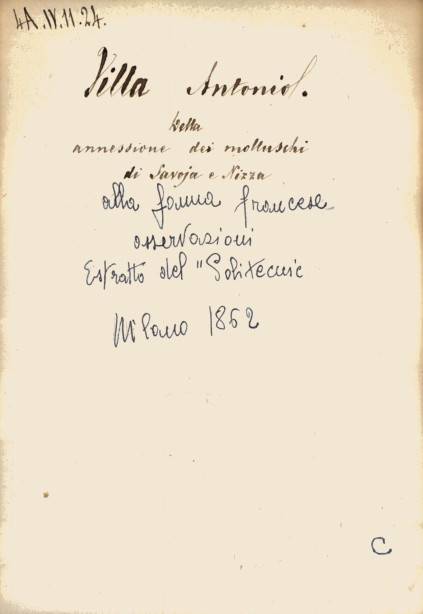 4A.IV.11.24.
Villa Antonio.
Della
annessione dei molluschi
di Savoja e Nizza
alla fauna francese
osservazioni
Estratto del "Politecnic
Milano 1862
C